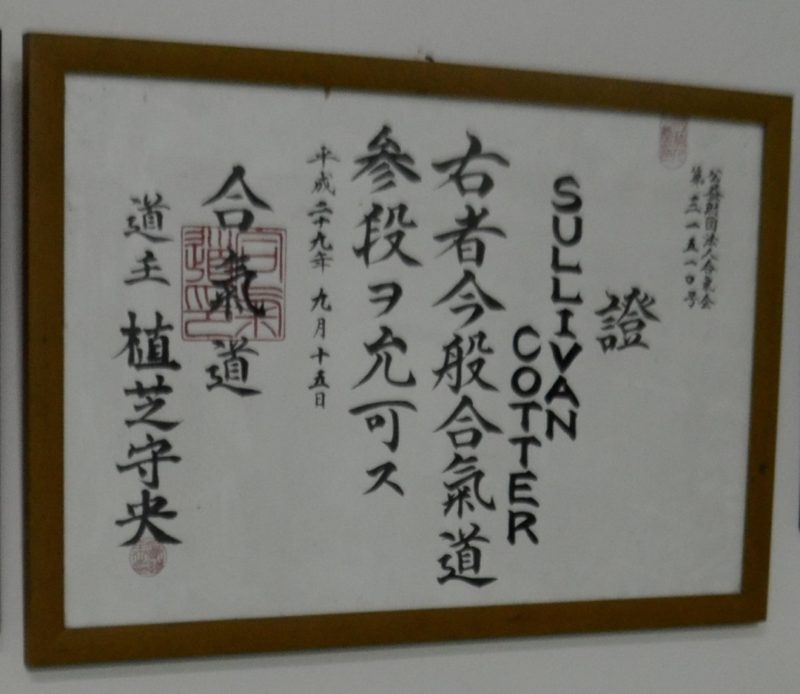 公益財団法人合氣会
證
SULLIVAN
COTTER
右者今般合氣道
參段ヲ允可ス
平成二十九年 九月十五日
合氣道
道主 植芝守央